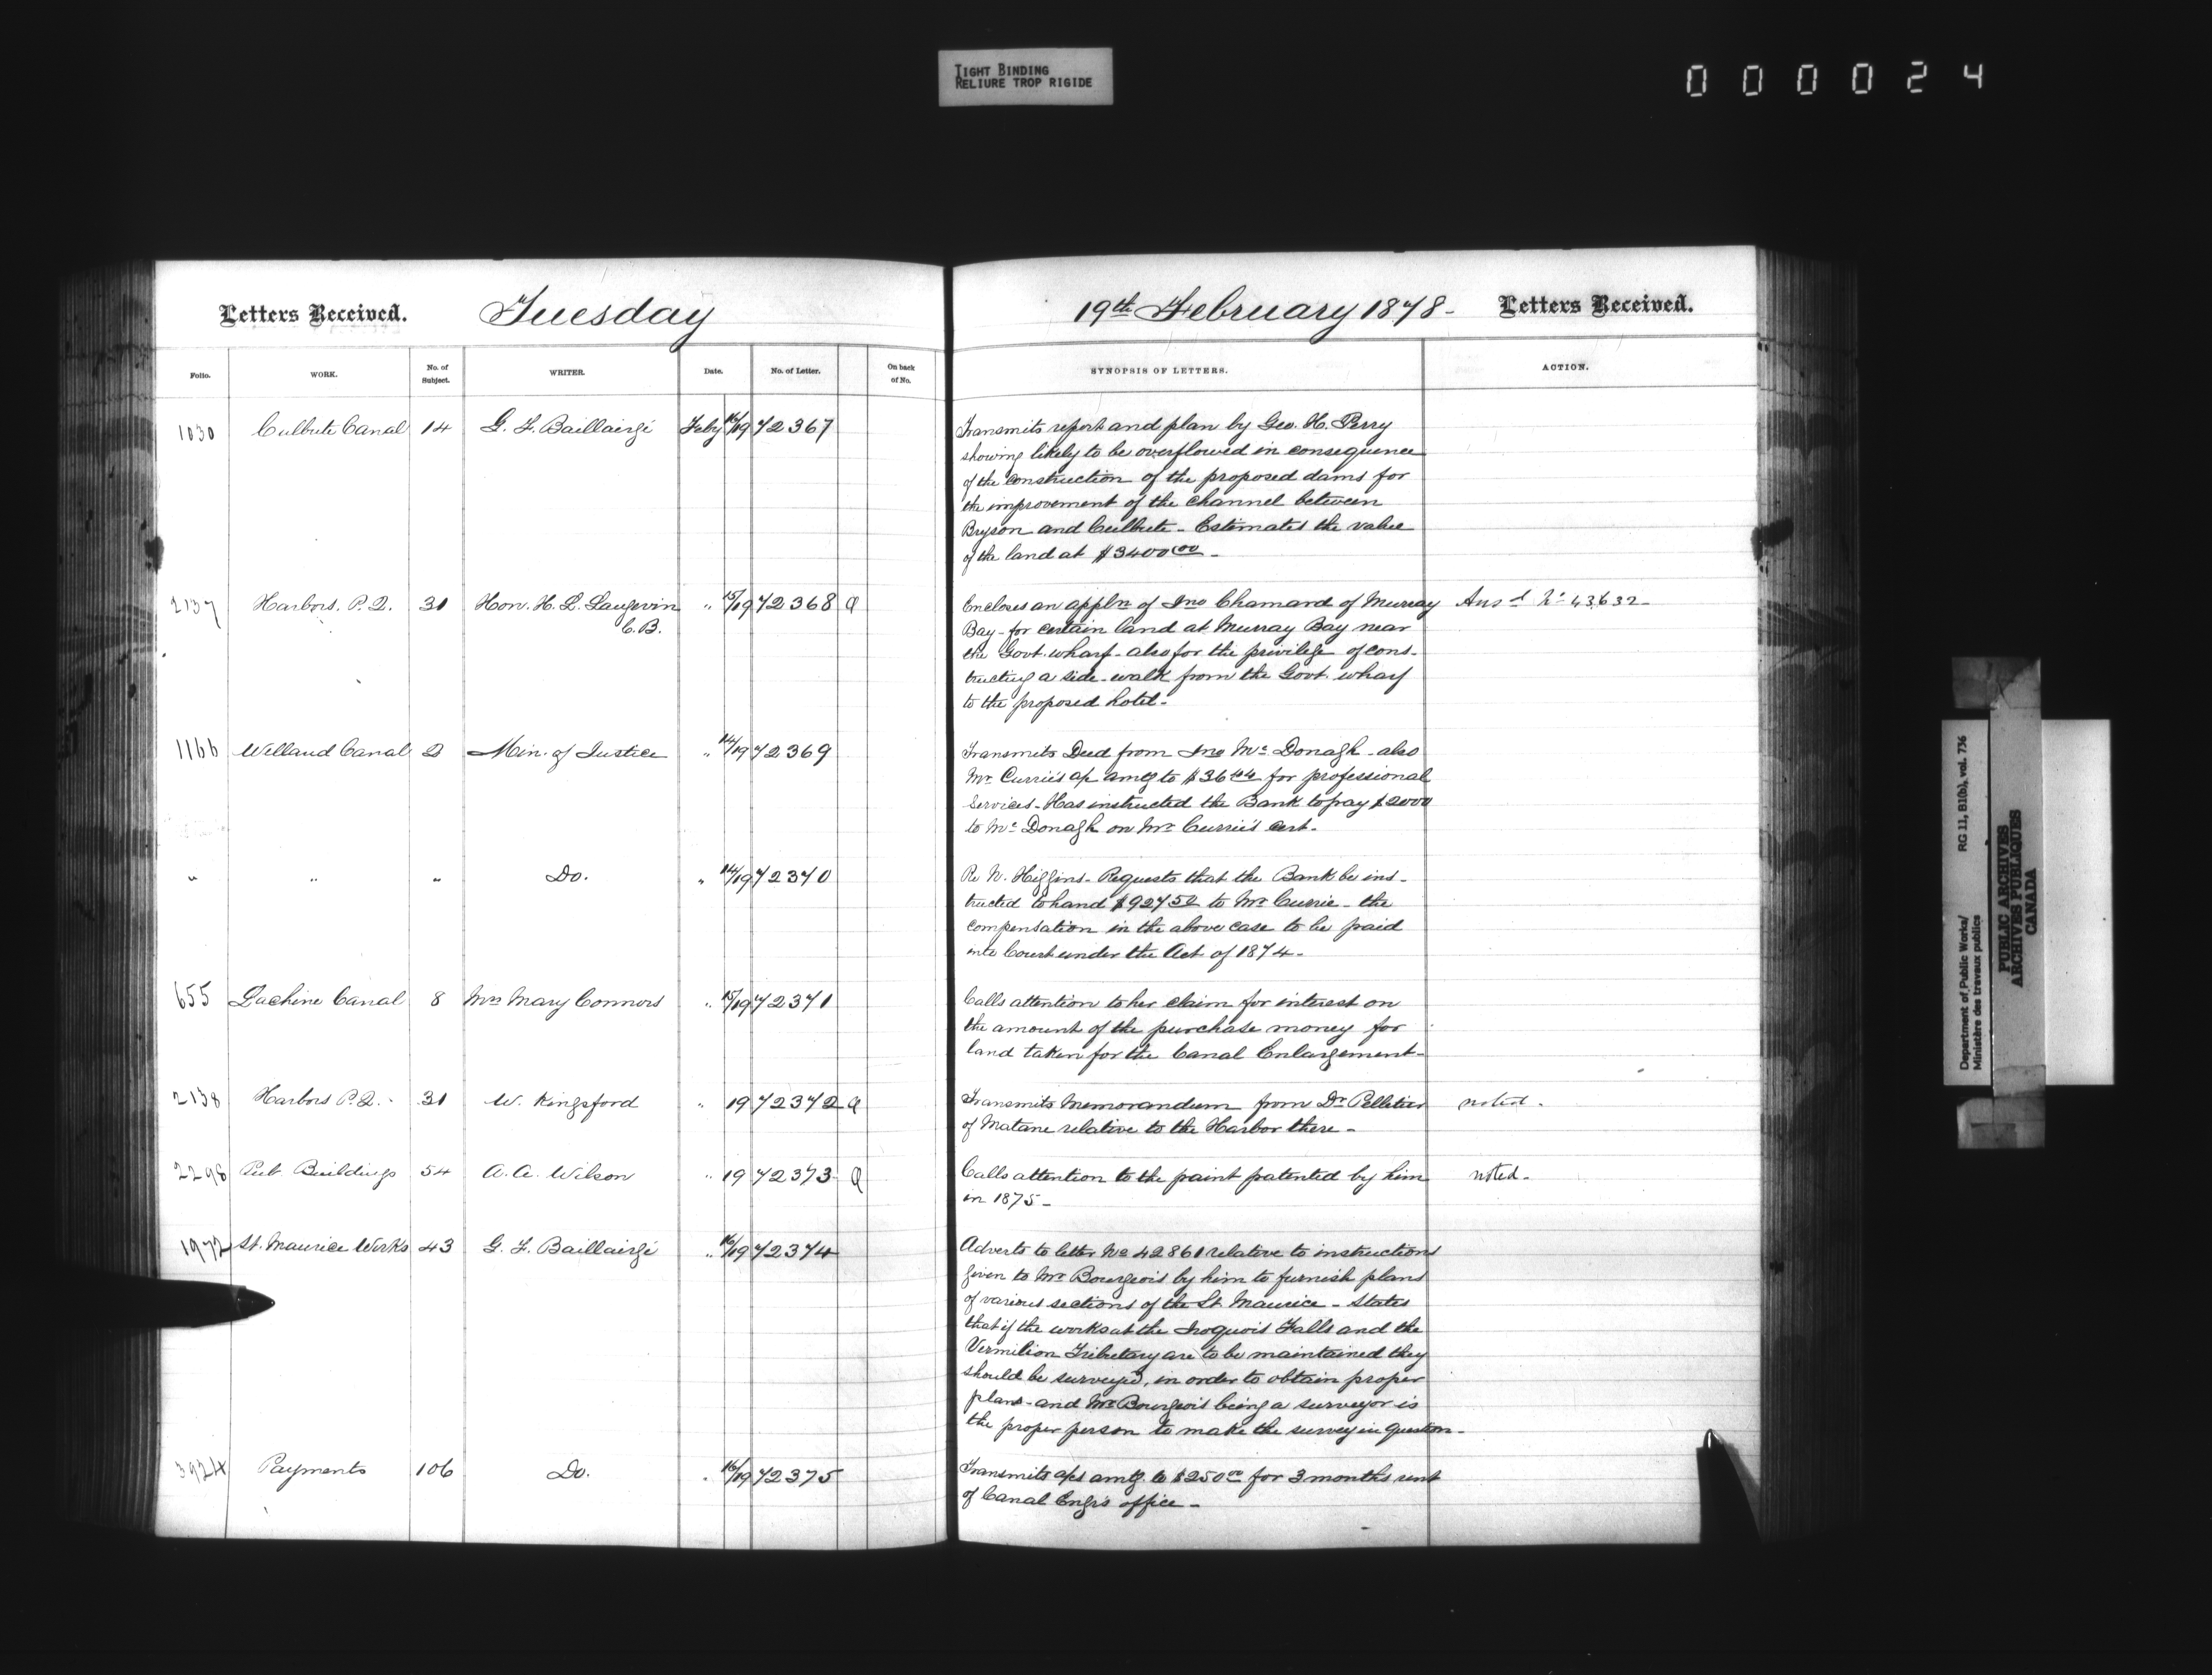 TIGHT BINDING
RELIURE TROP RIGIDE
000024
Letters Received. Tuesday
19th February 1878 - Letters Received.
Folio. WORK. No. of Subject. WRITER. Date. No. of Letter. On back of No.
SYNOPSIS OF LETTERS. ACTION.
1030 Culbute Canal 14 G. F. Baillairgé Feby 16/19 72367
Transmits report and plan by Geo. H. Perry
showing likely to be overflowed in consequence
of the construction of the proposed dams for
the improvement of the channel between
Bryson and Culbute - Estimates the value
of the land at $3400 00 -
2137 Harbors. P.Q. 31 Hon. H. L. Langevin " 15/19 72368 Q
C.B.
Encloses an appln of Jno Chamard of Murray Ansd No 43632 -
Bay - for certain land at Murray Bay near
the Govt. wharf - also for the privilege of cons-
tructing a side-walk from the Govt. wharf
to the proposed hotel -
1166 Welland Canal 2 Min. of Justice " 14/19 72369
Transmits Deed from Jno McDonagh - also
Mr Currie's a/c amtg to $36 04 for professional
services - Has instructed the Bank to pay $2000
to McDonagh on Mr Currie's cert -
" " " Do. " 14/19 72370
Re N. Higgins - Requests that the Bank be ins-
tructed to hand $927 50 to Mr Currie - the
compensation in the above case to be paid
into Court under the Act of 1874 -
655 Lachine Canal 8 Mrs Mary Connors " 15/19 72371
Calls attention to her claim for interest on
the amount of the purchase money for
land taken for the Canal Enlargement -
2138 Harbors P.Q. - 31 W. Kingsford " 19 72372 Q
Transmits Memorandum from Dr Pelletier noted -
of Matane relative to the Harbor there -
2298 Pub. Buildings 54 A. A. Wilson " 19 72373 Q
Calls attention to the paint patented by him noted -
in 1875 -
1972 St. Maurice Works 43 G. F. Baillairgé " 16/19 72374
Adverts to letter No 42861 relative to instructions
given to Mr Bourgeois by him to furnish plans
of various sections of the St. Maurice - States
that if the works at the Iroquois Falls and the
Vermilion Tributary are to be maintained they
should be surveyed, in order to obtain proper
plans - and Mr Bourgeois being a surveyor is
the proper person to make the survey in question -
3924 Payments 106 Do. " 16/19 72375
Transmits a/cs amtg. to $250 00 for 3 months rent
of Canal Engrs office -
Department of Public Works/ RG 11, B1(b), vol. 736
Ministère des travaux publics
PUBLIC ARCHIVES
ARCHIVES PUBLIQUES
CANADA